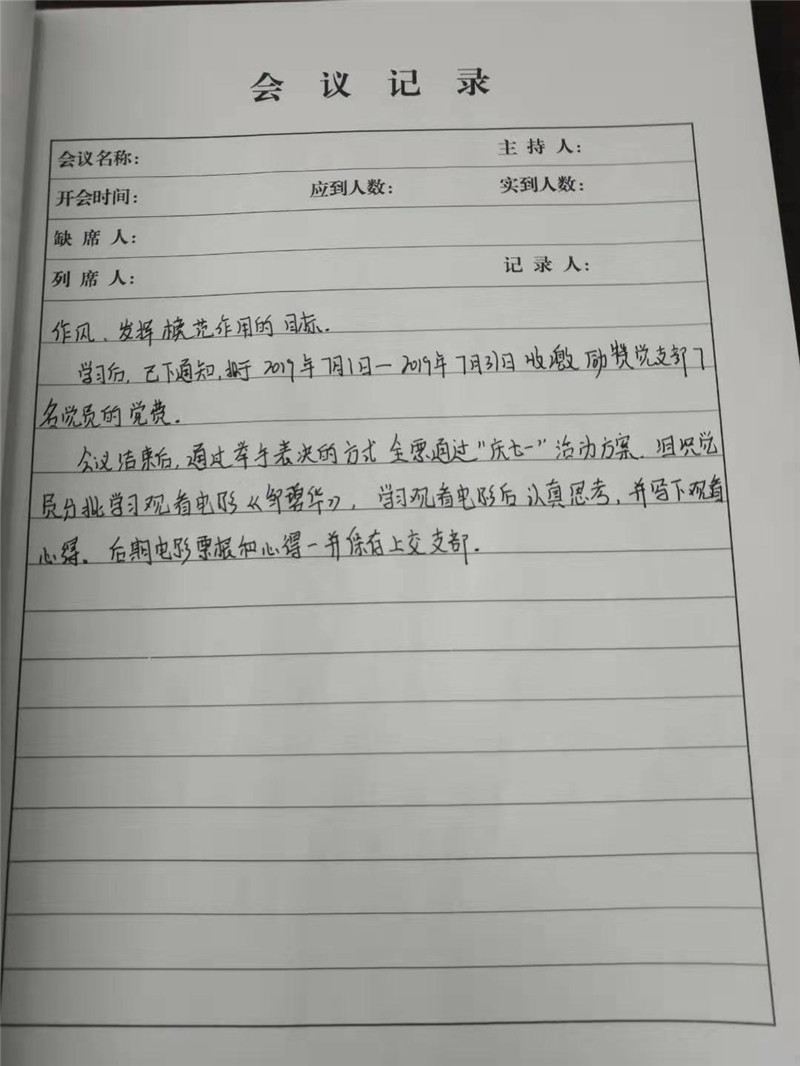 会议记录
会议名称: 主持人:
开会时间: 应到人数: 实到人数:
缺席人:
列席人: 记录人:
作风、发挥模范作用的目标.
学习后,已下通知,将于2019年7月1日—2019年7月31日收缴励赞党支部7
名党员的党费.
会议结束后,通过举手表决的方式全票通过"庆七一"活动方案.组织党
员分批学习观看电影《邹碧华》,学习观看电影后认真思考,并写下观看
心得。后期电影票根和心得一并保存上交支部.